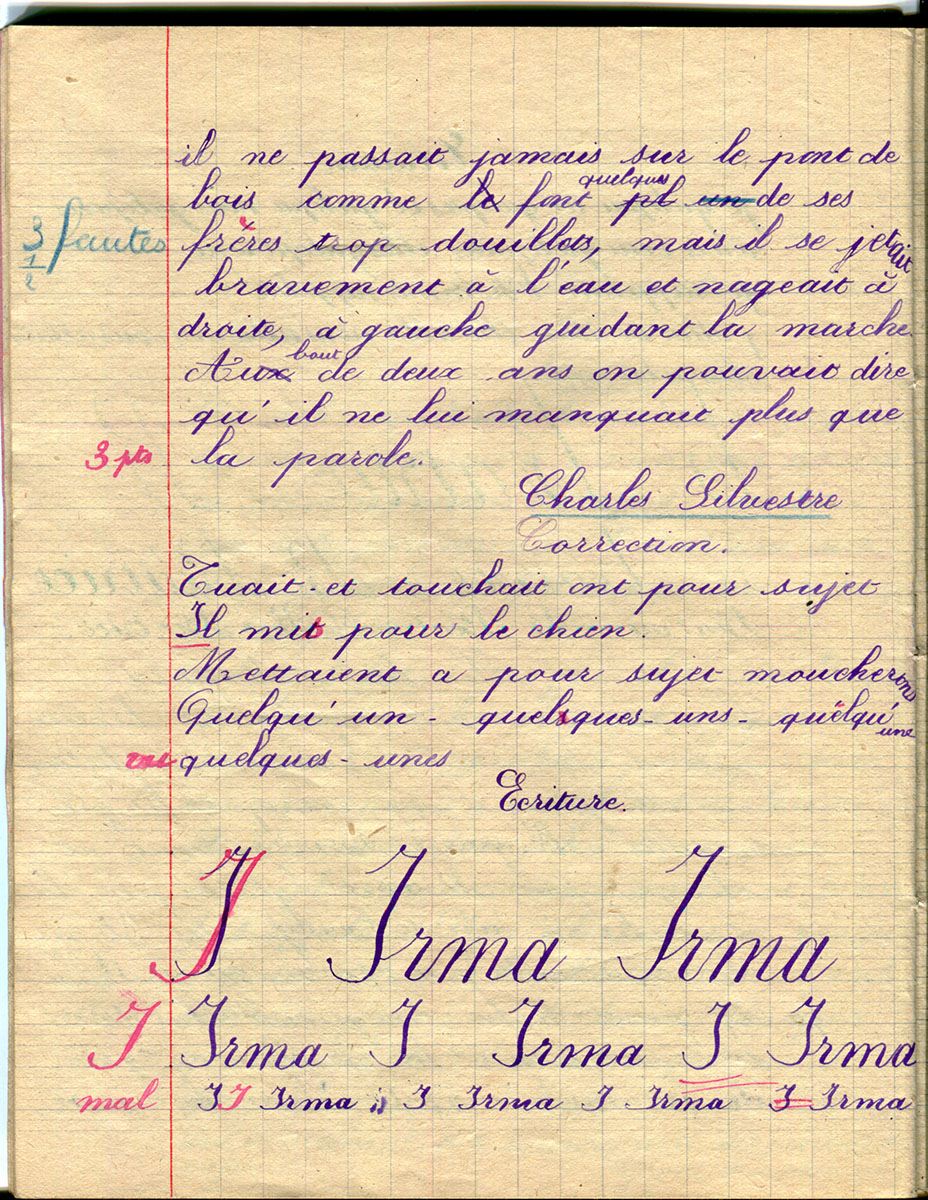 il ne passait jamais sur le pont de
quelques
bois comme le font pl un de ses
3 1/2 fautes frères trop douillots, mais il se jetait
bravement à l'eau et nageait à
droite, à gauche guidant la marche.
bout
Aux de deux ans on pouvait dire
qu'il ne lui manquait plus que
3 pts la parole.
Charles Silvestre
Correction.
Tuait et touchait ont pour sujet
Il mis pour le chien.
Mettaient a pour sujet moucherons
Quelqu'un - quelsques-uns - quelqu'une
quelques-unes
Ecriture.
I Irma Irma
I Irma I Irma I Irma
mal I I Irma I Irma I Irma I Irma